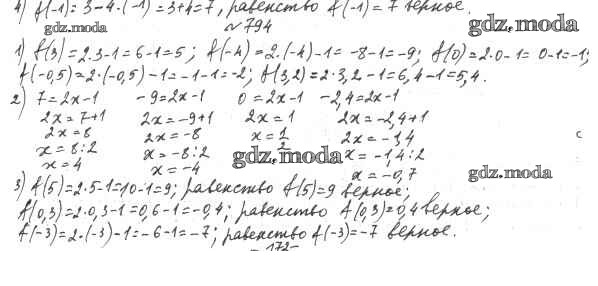 4) f(-1) = 3-4·(-1) = 3+4 = 7, равенство f(-1) = 7 верное.
gdz.moda
№ 794
gdz.moda
1) f(3) = 2·3-1 = 6-1 = 5; f(-4) = 2·(-4)-1 = -8-1 = -9; f(0) = 2·0-1 = 0-1 = -1;
f(-0,5) = 2·(-0,5)-1 = -1-1 = -2; f(3,2) = 2·3,2-1 = 6,4-1 = 5,4.
2) 7 = 2x-1 -9 = 2x-1 0 = 2x-1 -2,4 = 2x-1
2x = 7+1 2x = -9+1 2x = 1 2x = -2,4+1
2x = 8 2x = -8 x = 1/2 2x = -1,4
x = 8:2 x = -8:2 gdz.moda x = -1,4:2
x = 4 x = -4 x = -0,7
gdz.moda
3) f(5) = 2·5-1 = 10-1 = 9; равенство f(5) = 9 верное;
f(0,3) = 2·0,3-1 = 0,6-1 = -0,4; равенство f(0,3) = 0,4 верное;
f(-3) = 2·(-3)-1 = -6-1 = -7; равенство f(-3) = -7 верное.
- 172 -
c